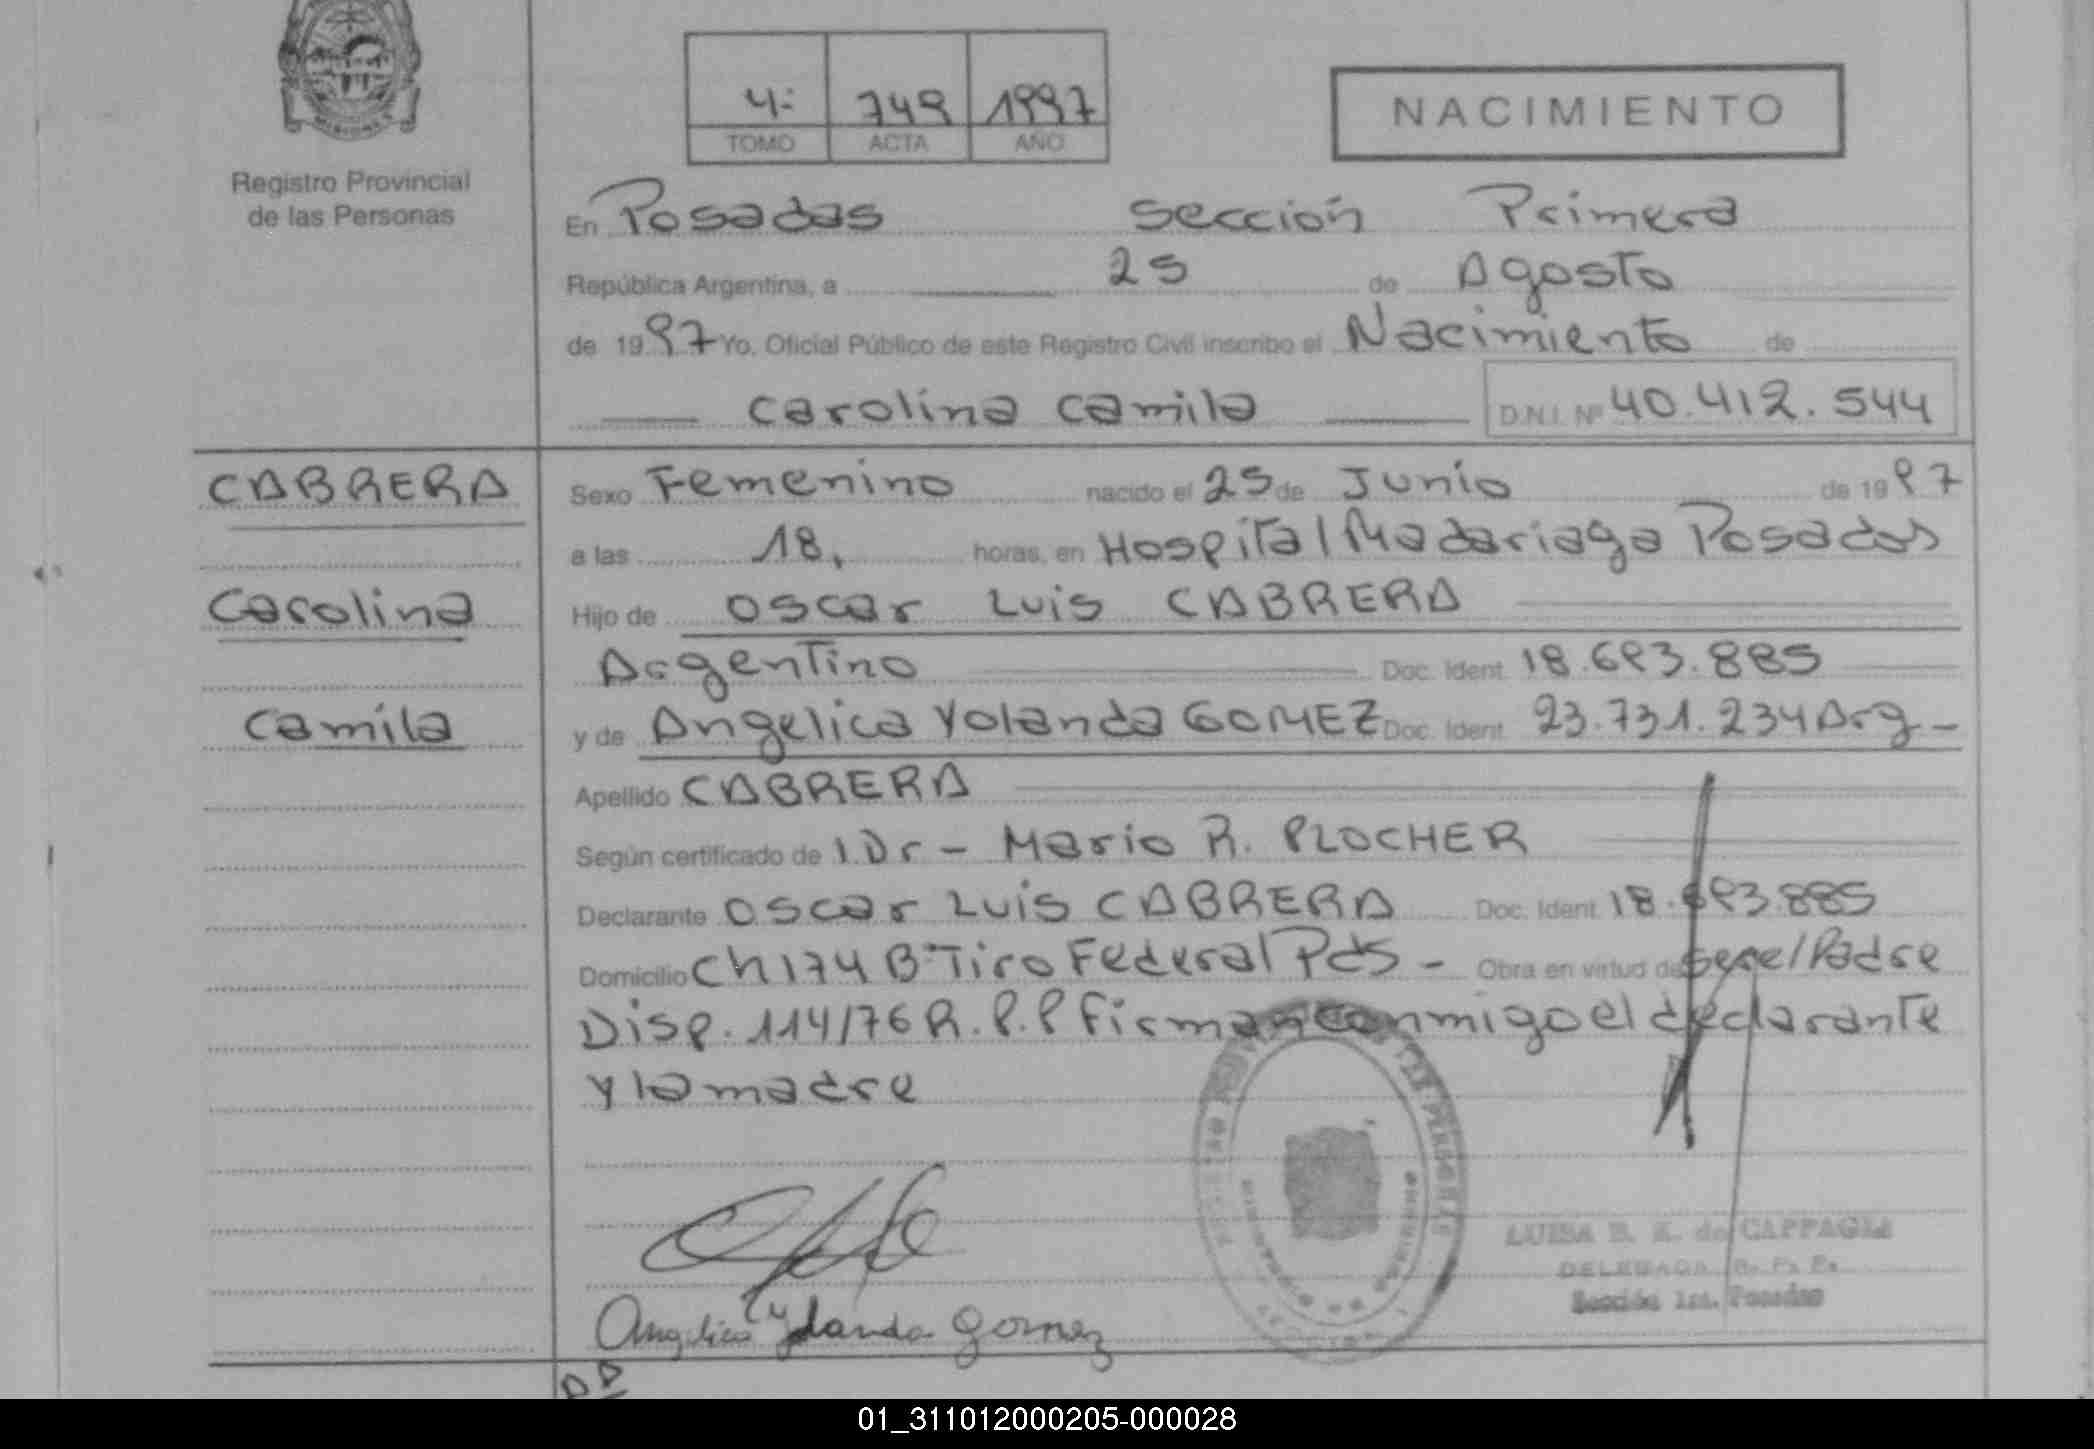 MISIONES
Registro Provincial
de las Personas
4:
749
1997
TOMO
ACTA
AÑO
NACIMIENTO
En Posadas sección Primera
República Argentina, a 25 de Agosto
de 1997 Yo, Oficial Público de este Registro Civil inscribo el Nacimiento de
Carolina Camila
D.N.I. Nº 40.412.544
CABRERA
Carolina
Camila
Sexo Femenino nacido el 25 de Junio de 1997
a las 18, horas, en Hospital Madariaga Posadas
Hijo de Oscar Luis CABRERA
Argentino Doc. Ident. 18.693.885
y de Angelica Yolanda GOMEZ Doc. Ident. 23.731.234 Arg -
Apellido CABRERA
Según certificado de 1. Dr - Mario R. PLOCHER
Declarante Oscar Luis CABRERA Doc. Ident. 18.693.885
Domicilio Ch 174 Bº Tiro Federal Pds - Obra en virtud de ser el Padre
Disp. 114/76 R.P.P firman conmigo el declarante
y la madre
Angelica Yolanda Gomez
LUISA B. K. de CAPPAGLI
DELEGADA R. P. P.
Sección 1ra. Posadas
01_311012000205-000028